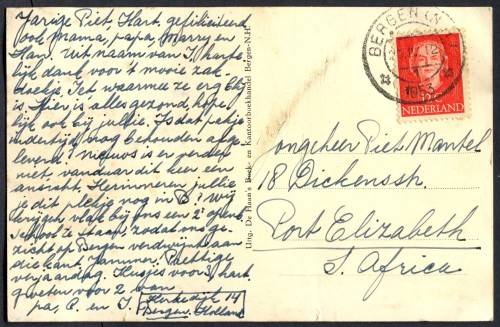 Jarige Piet, Hart. gefiliciteerd
ook Mama, papa, Marry en
Han. Uit naam van J. harte-
lijk dank voor 't mooie zak-
doekje. Jet waarmee ze erg blij
is. Hier is alles gezond, hope-
lijk ook bij jullie. Is dat pakje
indertijd nog behouden aange-
leverd? nieuws is er verder
niet, vandaar dit keer een
ansicht. Herinneren jullie
je dit plekje nog in B? Wij
krijgen vlak bij ons een 2e
school te staan, zodat ons ge-
zicht op Bergen verdwijnt aan
die kant. Jammer. Prettige
verjaardag. Kusjes voor 3, hart.
groeten voor 2 van
pa, C. en J.
Kerkedijk 14
Bergen. Holland
Uitg. De Haan's Boek- en Kantoorboekhandel Bergen-N.H.
BERGEN (N
12
1953
NEDERLAND
Jongeheer Piet Mantel
18 Dickensstr.
Port Elizabeth
S. Africa